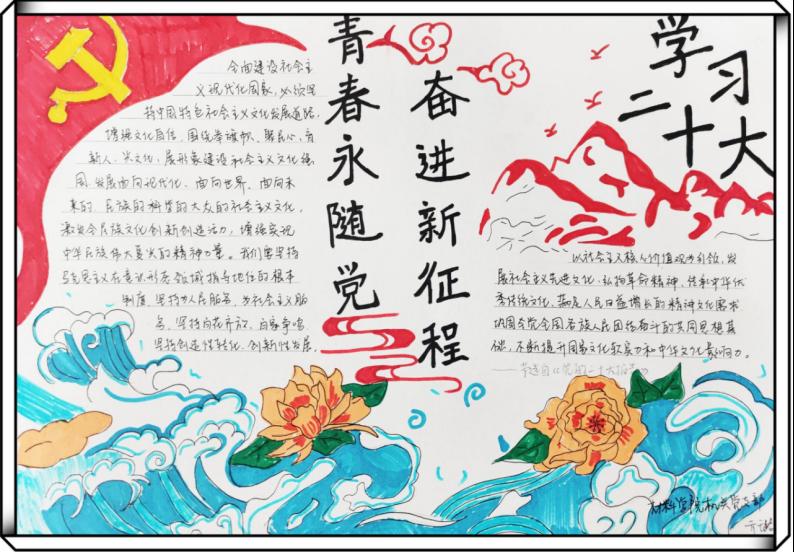 青春永随党
奋进新征程
学习
二十大
全面建设社会主
义现代化国家，必须坚
持中国特色社会主义文化发展道路，
增强文化自信，围绕举旗帜、聚民心、育
新人、兴文化、展形象建设社会主义文化强
国，发展面向现代化、面向世界、面向未
来的，民族的科学的大众的社会主义文化，
激发全民族文化创新创造活力，增强实现
中华民族伟大复兴的精神力量。我们要坚持
马克思主义在意识形态领域指导地位的根本
制度，坚持为人民服务、为社会主义服
务，坚持百花齐放、百家争鸣，
坚持创造性转化、创新性发展，
以社会主义核心价值观为引领，发
展社会主义先进文化，弘扬革命精神，传承中华优
秀传统文化，满足人民日益增长的精神文化需求
巩固全党全国各族人民团结奋斗的共同思想基
础，不断提升国家文化软实力和中华文化影响力。
——节选自《党的二十大报告》
材料学院机关党支部